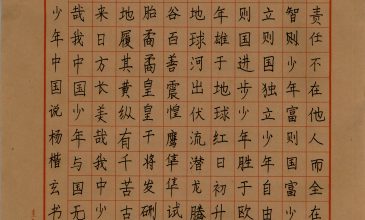 责任不在他人而全在
智则少年富则国富少
立则国独立少年自由
则国进步少年胜于欧
年雄于地球红日初升
地球河出伏流潜龙腾
谷百兽震惶鹰隼试
胎矞矞皇皇干将发硎
地履其黄纵有千古
来日方长美哉我少
哉我中国少年与国无
少年中国说杨楷玄书